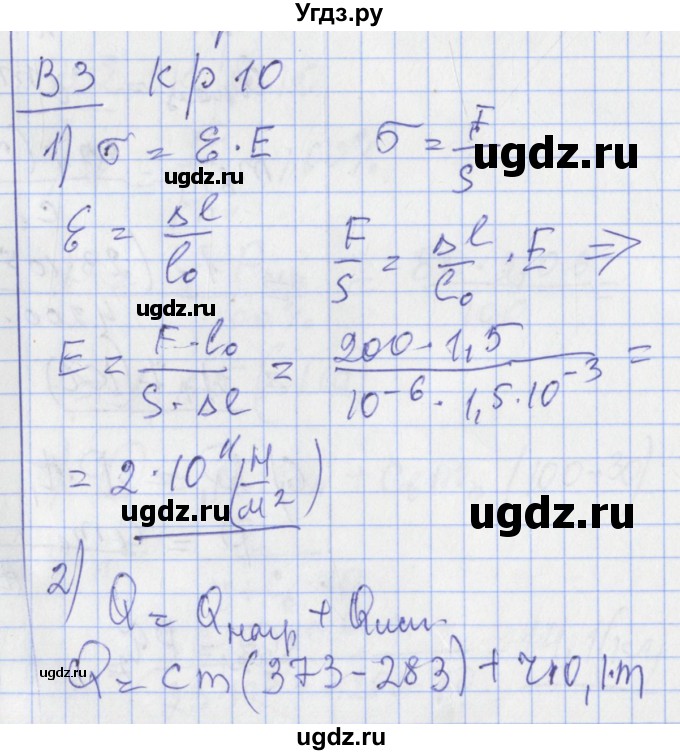 Угдз.ру
В3 кр 10
1) σ = ε · E σ = F/S
ugdz.ru ugdz.ru
ε = Δl/l₀ F/S = Δl/l₀ · E ⇒
ugdz.ru
E = F · l₀/S · Δl = 200 · 1,5/10⁻⁶ · 1,5 · 10⁻³ =
= 2 · 10¹¹ (Н/м²)
ugdz.ru ugdz.ru
2) Q = Qнагр + Qисп.
ugdz.ru ugdz.ru
Q = cm(373 – 283) + 0,1 · m
ugdz.ru